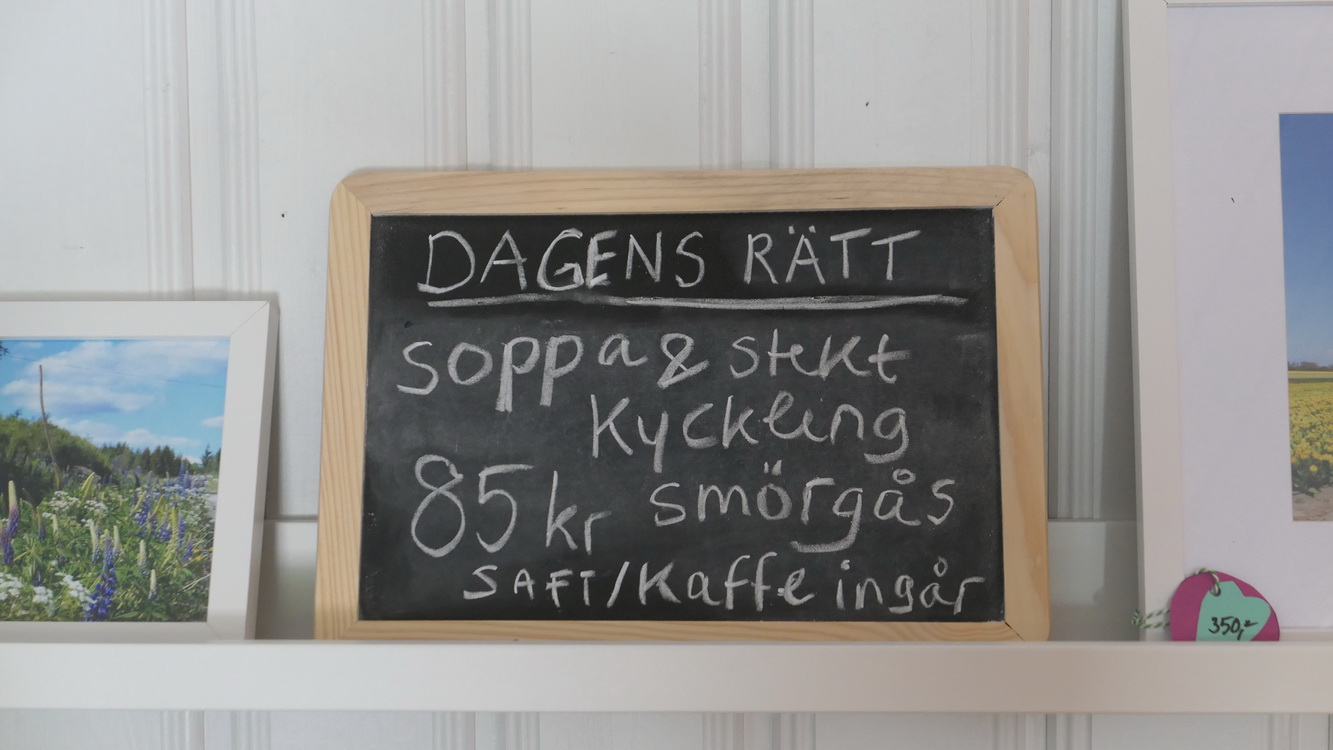 DAGENS RÄTT
soppa & stekt
Kyckling
85 kr smörgås
SAFT/Kaffe ingår
350,-